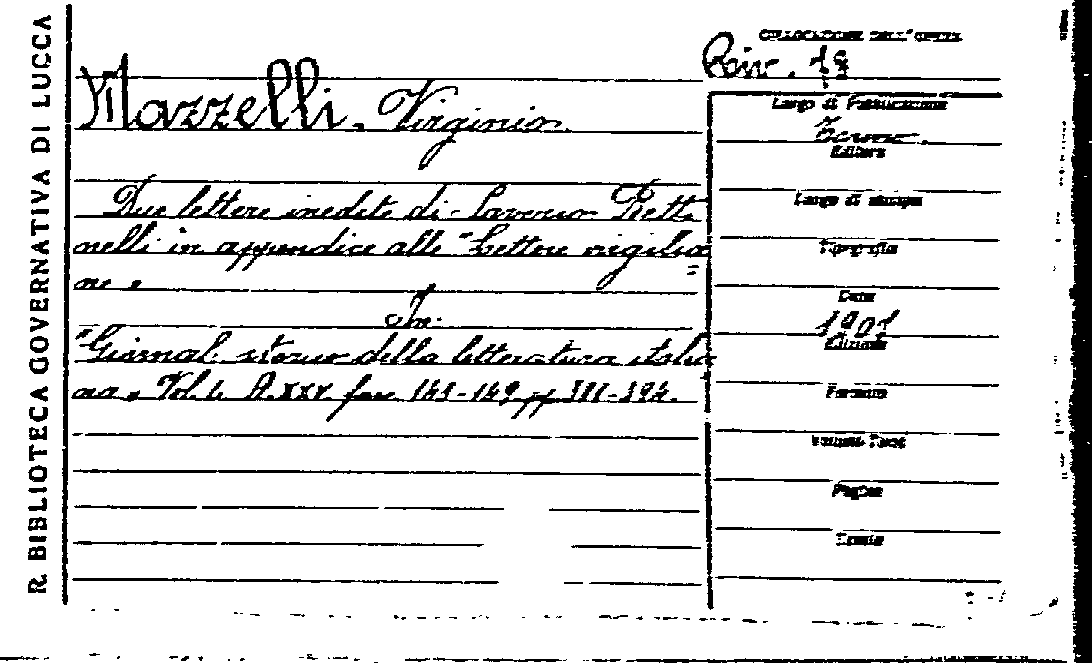 R. BIBLIOTECA GOVERNATIVA DI LUCCA
COLLOCAZIONE DELL'OPERA
Riv. 18
Mazzelli, Virginio
Due lettere inedite di Saverio Betti
nelli in appendice alle "Lettere virgilia
ne"
In:
"Giornal. storico della letteratura italia
na" Vol. L A. XXV fasc. 148-149 pp
Luogo di Pubblicazione
Torino
Editore
Luogo di stampa
Tipografia
Data
1907
Edizione
Formato
Pagine